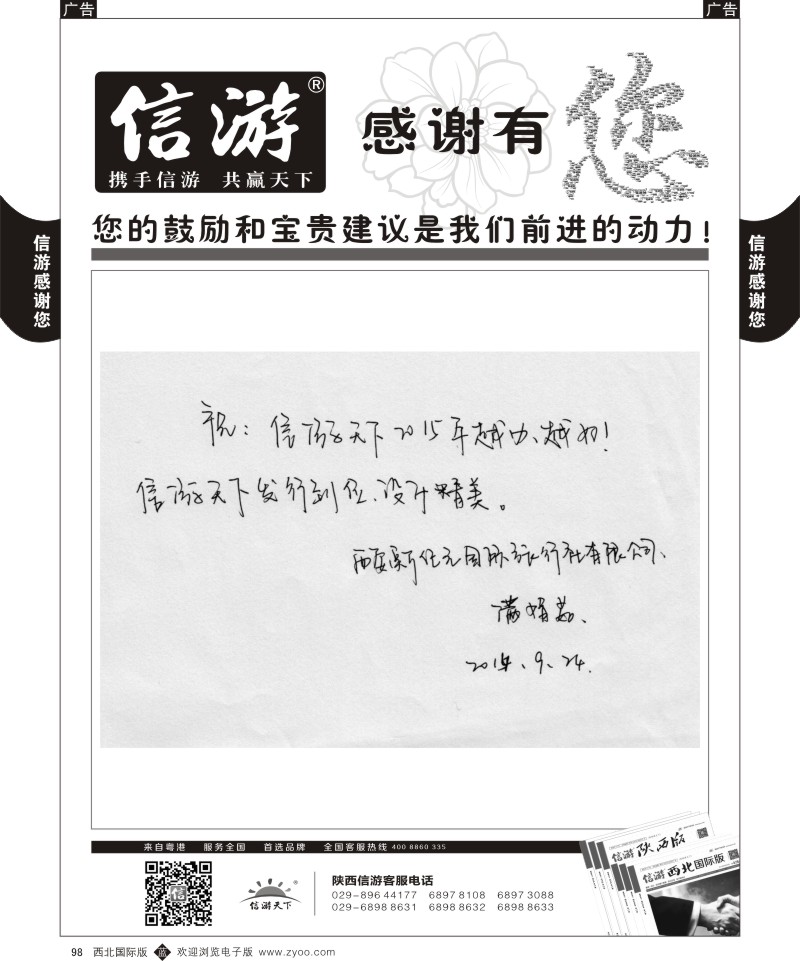 广告
广告
信游®
携手信游 共赢天下
感谢有您
您的鼓励和宝贵建议是我们前进的动力！
信游感谢您
信游感谢您
祝：信游天下2015年越办、越好！
信游天下发行到位、设计精美。
西安新纪元国际旅行社有限公司、
2014、9、24.
来自粤港 服务全国 首选品牌 全国客服热线 400 8860 335
信游
信游天下
陕西信游客服电话
029-896 44177 6897 8108 6897 3088
029-6898 8631 6898 8632 6898 8633
信游 陕西版
信游 西北国际版
98 西北国际版 蓝 欢迎浏览电子版 www.zyoo.com